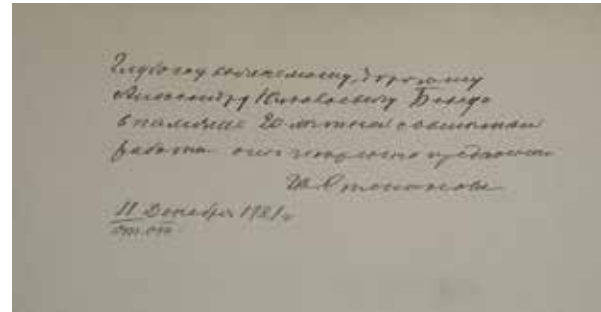 Глубокоуважаемому, дорогому
Александру Николаевичу
в память 20 летней совместной
работы от искренно преданного
11 Декабря 1921 г